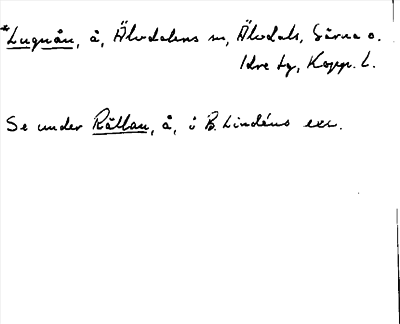 *Lugnån, å, Älvdalens sn, Älvdals, Särna o.
Idre tg, Kopp. l.
Se under Råttan, å, i B. Lindéns exc.